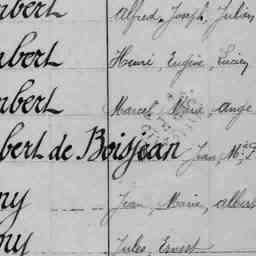 mbert Alfred, Joseph, Julien
mbert Henri, Eugène, Lucien
mbert Marcel, Marie, Ange
bert de Boisjean Jean, M.
ny Jean, Marie, Albert
ny Jules, Ernest